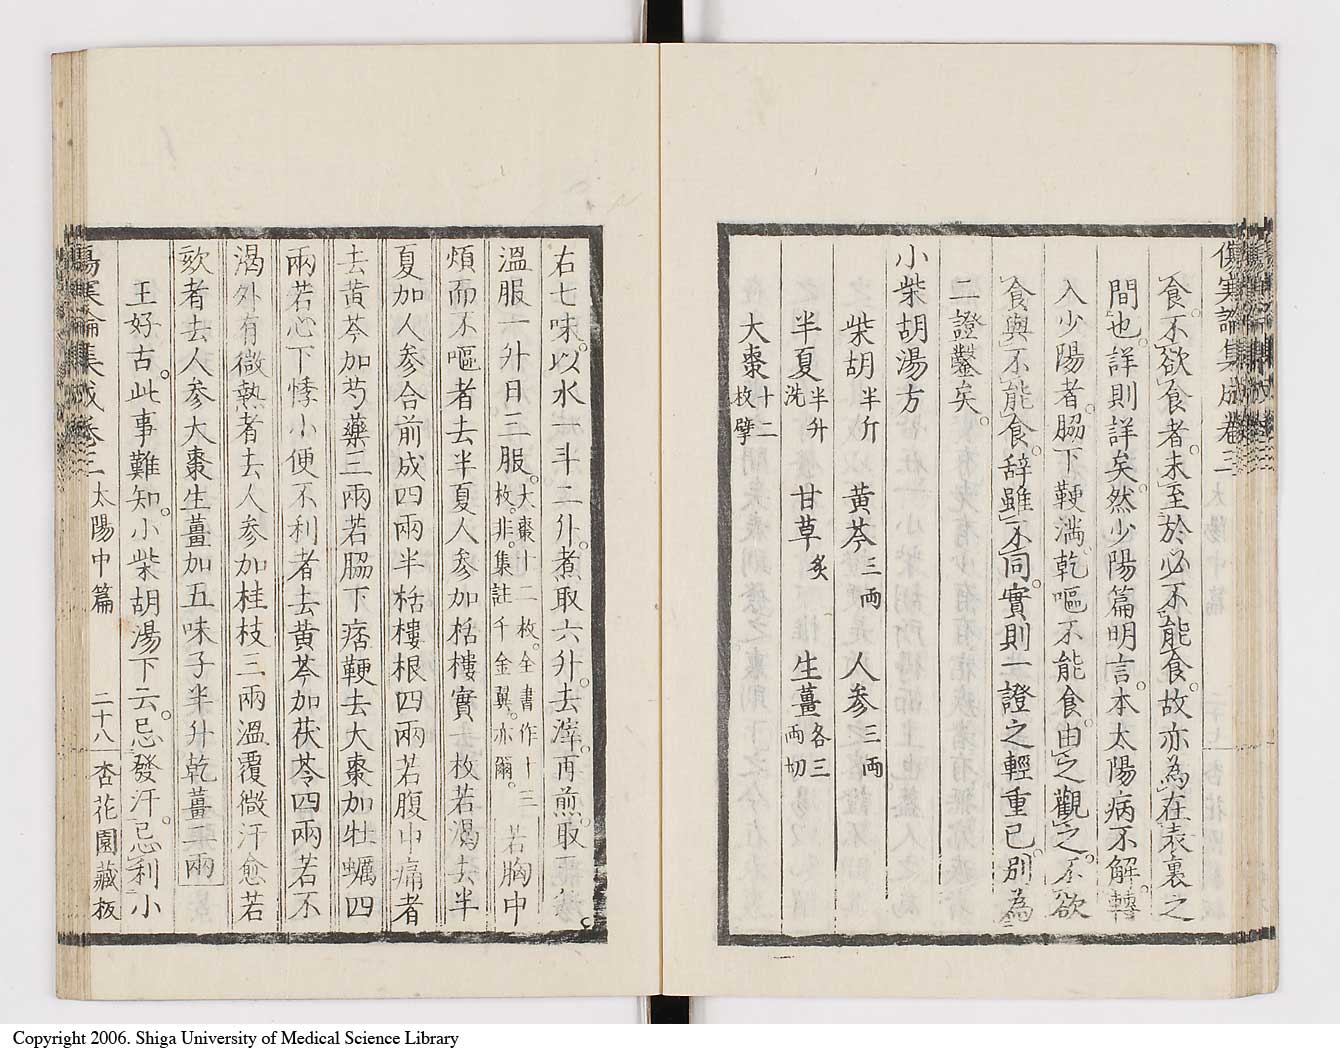 傷寒論集成卷三
食。不欲食者。未至於必不能食。故亦為在表裏之
間也。詳則詳矣。然少陽篇明言。本太陽病不解。轉
入少陽者。脇下鞕滿。乾嘔不能食。由之觀之。不欲
食與不能食。辞雖不同。實則一證之輕重已。別為
二證鑿矣。
小柴胡湯方
柴胡半斤 黃芩三兩 人參三兩
半夏半升洗 甘草炙 生薑各三兩切
大棗十二枚擘
右七味。以水一斗二升。煮取六升。去滓。再煎。取
溫服一升日三服。大棗十二枚。全書作十三枚。非。集註千金翼。亦爾。若胸中
煩而不嘔者去半夏人參加栝樓實一枚若渴去半
夏加人參合前成四兩半栝樓根四兩若腹中痛者
去黃芩加芍藥三兩若脇下痞鞕去大棗加牡蠣四
兩若心下悸小便不利者去黃芩加茯苓四兩若不
渴外有微熱者去人參加桂枝三兩溫覆微汗愈若
欬者去人參大棗生薑加五味子半升乾薑二兩
王好古。此事難知。小柴胡湯下云。忌發汗。忌利小
傷寒論集成卷三 太陽中篇 二十八 杏花園藏板
Copyright 2006. Shiga University of Medical Science Library